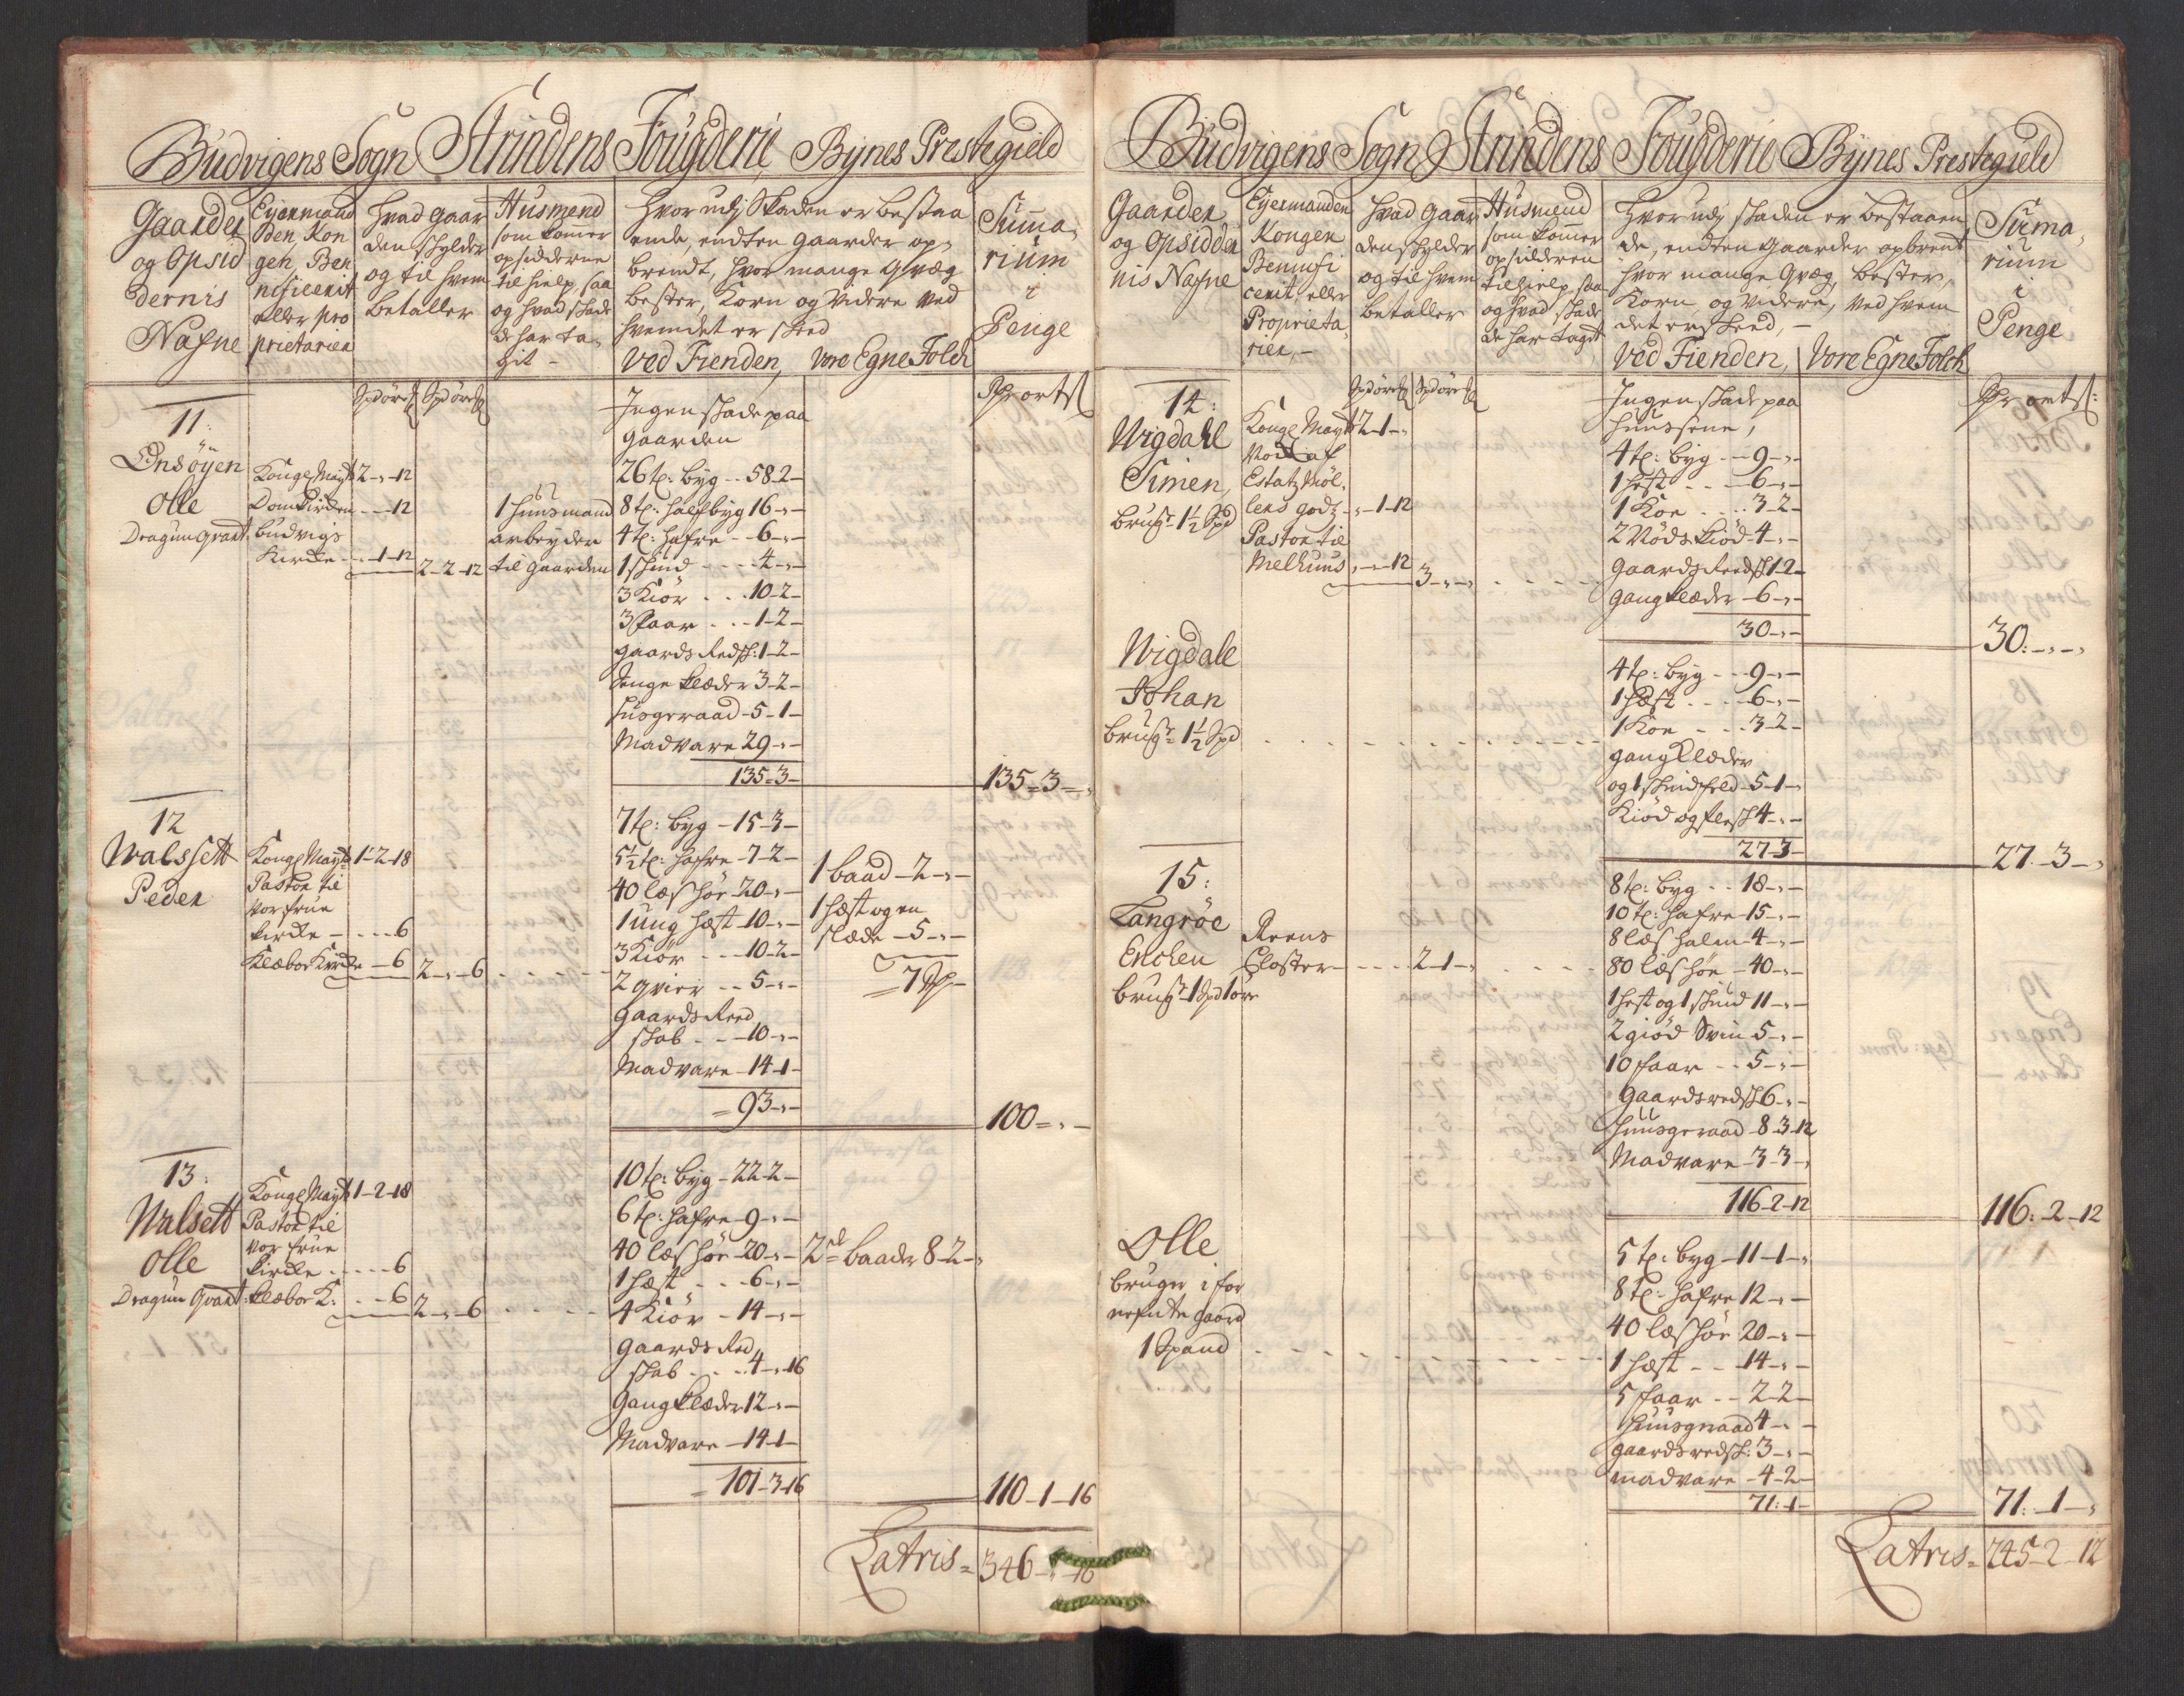 Budvigens Sogn Strindens Fougderie, Bynes Prestegield
Gaarder
og Opsid
dernis
Nafne
Eyermand
Ben, Kon
gen, Ben
nificerit
eller pro
prietarien
Hvad gaar
den schylder
og til hvem
betaller
Husmend
som komer
opsidderne
til hielp, saa
og hvad skade
de har ta-
git -
Hvor udj Skaden er bestaa
ende, endten gaarder op-
brendt, hvor mange qvæg
bester, Korn og videre ved
hvem det er skeed
Ved Fienden,
Vore Egne Folch
Suma-
rium
i
Penge
Spd ört
Spd ört
Rdr ort s
11:
Onsöyen
Olle
Dragun qvart:
Kongl Mayt 2 - " - 12
Domkircken - - - 12
Budvigs
Kircke - - 1 - 12
2 - 2 - 12
1 huusmand
arbeyder
til gaarden
Ingen skade paa
gaarden
26 t: byg - - 58 - 2 -
8 t: halfbyg 16 - " -
4 t: hafre - - 6 - " -
1 skind - - - - 4 - " -
3 Kiör - - . 10 - 2 -
3 Faar - - . 1 - 2 -
gaards Redsk: 1 - 2 -
Senge klæder 3 - 2 -
husgeraad - 5 - 1 -
Madvare 29 - " -
135 - 3 -
135 = 3 = "
12
Walssett
Peder
Kongl Mayt 1 - 2 - 18
Pastor til
Vor frue
kircke - - - - 6
Klæboe Kircke - 6
2 - " - 6
7 t: byg - 15 - 3 -
5½ t: hafre - 7 - 2 -
40 læs höe 20 - " -
1 ung hæst - 10 - " -
3 Kiör - - - 10 - 2 -
2 qvier - - 5 - " -
gaards Reed
skab - - - 10 - " -
Madvare - 14 - 1 -
= 93 - " -
1 baad - 2 - " -
1 hæst og en
slæde - 5 - " -
= 7 Rdr -
100 = " -
13:
Walsett
Olle
Dragun Qvart:
Kongl Mayt 1 - 2 - 18
Pastor til
Vor frue
kircke - - - - - 6
klæboe K: - - - 6
2 - " - 6
10 t: byg - 22 - 2 -
6 t: hafre - 9 - " -
40 læs höe - 20 - " -
1 hæst - - - 6 - " -
4 Kiör - 14 - " -
gaards Red
skab - - - 4 - " - 16
Gangklæder 12 - " -
Madvare - 14 - 1 -
= 101 - 3 - 16
2de baader 8 - 2 - "
110 - 1 - 16
Latris = 346 - " - 16
Budvigens Sogn Strindens Fougderie Bynes Prestegield
Gaarder
og Opsidder
nis Nafne
Eyermanden
Kongen
Bennifi
cerit, eller
Proprieta
rier, -
Hvad gaar
den schylder
og til hvem
betaller
Husmend
som komer
opsidderen
til hielp, saa
og hvad skade
de har taget
Hvor udj skaden er bestaaen
de, endten gaarder opbrent
hvor mange qvæg, bester,
Korn, og videre, ved hvem
det er skeed, -
Ved Fienden,
Vore Egne Folch
Suma-
rium
i
Penge
Spd ört
Spd ört
Rdr ort s:
14:
Wigdahl
Simen,
brugr 1½ Spd
Kongl Mayt 2 - 1 - "
Estatz Möl-
lers godz - " - 1 - 12
Pastor til
Melhuus, - " - 12
3 - " - "
Ingen skade paa
huussene,
4 t: byg - - 9 - " -
1 hest - - - 6 - " -
1 Koe - - . . 3 - 2 -
2 Nöds kiöd - 4 - " -
gaards Reedsk 1 - 2 -
gangklæder - 6 - " -
30 - " -
30: - " - "
Wigdale
Johan
brugr 1½ Spd
4 t: byg - - 9 - " -
1 hæst - - - 6 - " -
1 Koe - - - 3 - 2 -
gangklæder
og 1 skindfeld - 5 - 1 - "
Kiöd og flesk 4 - " -
27 - 3 -
27 - 3 - "
15:
Langröe
Erichen
brugr 1 Spd 1 öre
Reens
Closter - - - - 2 - 1 - "
8 t: byg - - 18 - " -
10 t: hafre - 15 - " -
8 læs halm - 4 - " -
80 læs höe - 40 - " -
1 hest og 1 skind 11 - " -
2 giöd Svin 5 - " -
10 faar - - 5 - " -
gaards redsk 6 - " -
huusgeraad - 8 - 3 - 12
Madvare - 3 - 3 - "
116 - 2 - 12
116: - 2 - 12
Olle
bruger i for
nefnte gaard
1 Spand
5 t: byg - 11 - 1 - "
8 t: hafre 12 - " -
40 læs höe 20 - " -
1 hæst - - - 14 - " -
5 faar - - 2 - 2 -
huusgeraad 4 - " -
gaards redsk: 3 - " -
madvare - 4 - 2 -
71: - 1 -
71: - 1 - "
Latris = 245 - 2 - 12